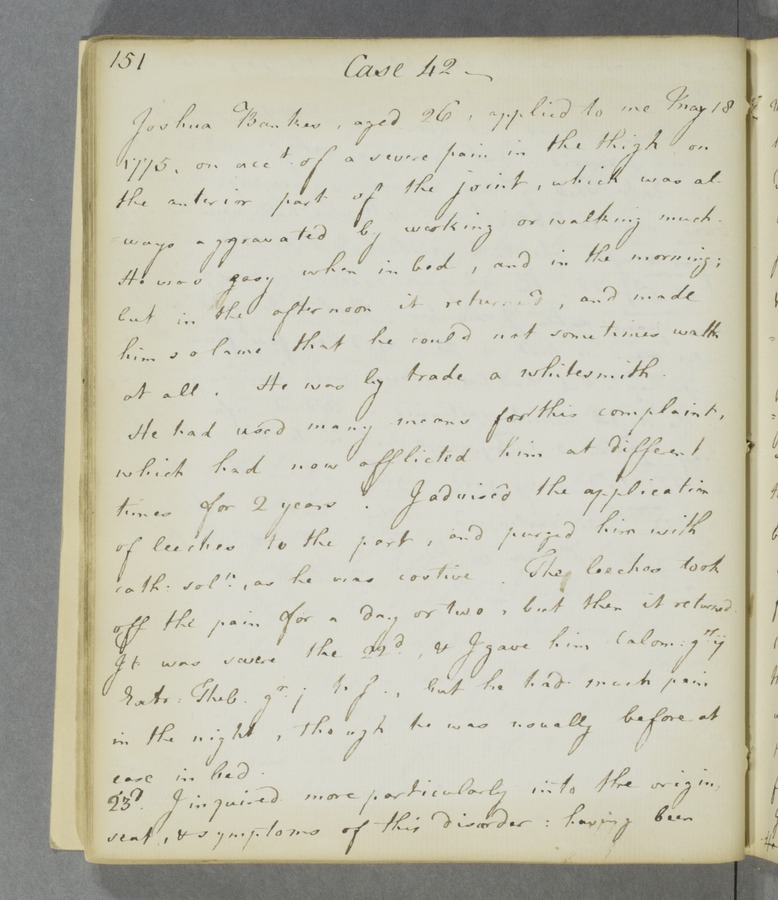 151
Case 42
Joshua Bankes, aged 26, applied to me May 18
1775, on acct. of a severe pain in the thigh on
the anterior part of the joint, which was al-
-ways aggravated by working or walking much.
He was easy when in bed, and in the morning;
but in the afternoon it returned, and made
him so lame that he could not sometimes walk
at all. He was by trade a whitesmith.
He had used many means for this complaint,
which had now afflicted him at different
times for 2 years. I advised the application
of leeches to the part, and purged him with
cath: soln., as he was costive. The leeches took
off the pain for a day or two, but then it returned.
It was severe the 22d, & I gave him Calom: gr ij
Extr: Theb. gr. j h.s., but he had much pain
in the night, though he was usually before at
ease in bed.
23d. I inquired more particularly into the origin,
seat, & symptoms of this disorder: having been